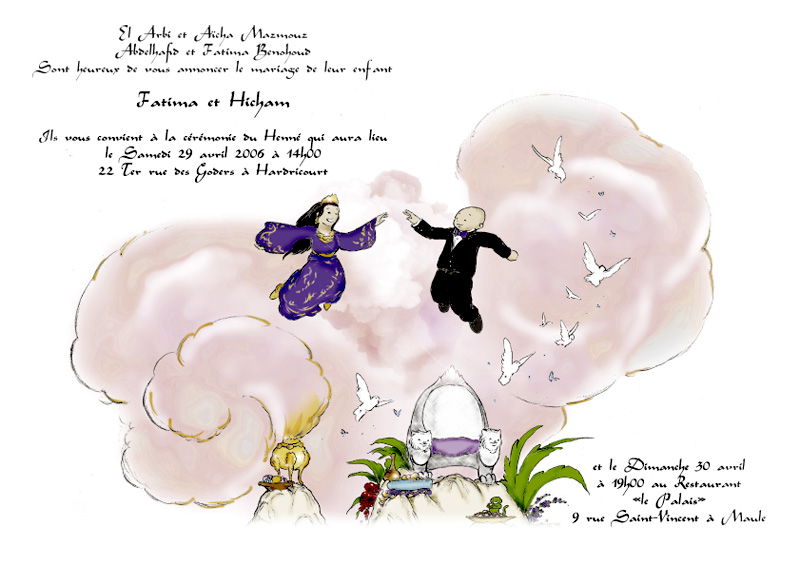 El Arbi et Aïcha Mazmouz
Abdelhafid et Fatima Benohoud
Sont heureux de vous annoncer le mariage de leur enfant
Fatima et Hicham
Ils vous convient à la cérémonie du Henné qui aura lieu
le Samedi 29 avril 2006 à 14h00
22 Ter rue des Goders à Hardricourt
et le Dimanche 30 avril
à 19h00 au Restaurant
«le Palais»
9 rue Saint-Vincent à Maule